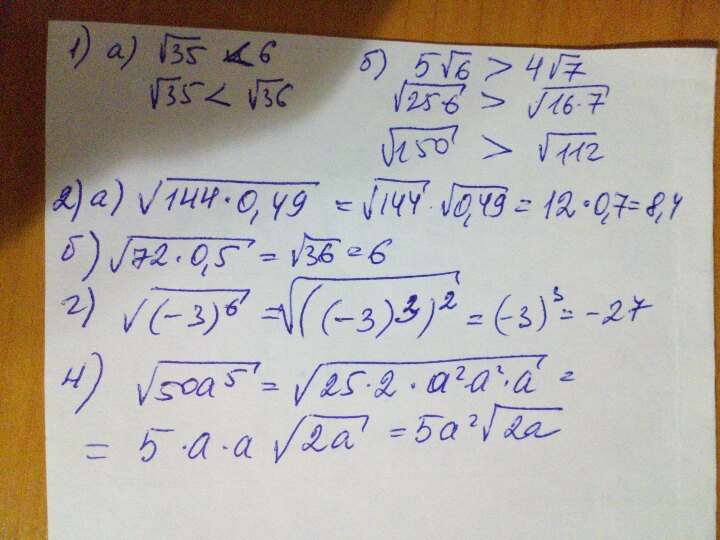 1) а) √35 < 6
√35 < √36
б) 5√6 > 4√7
√25·6 > √16·7
√150 > √112
2) а) √144·0,49 = √144·√0,49 = 12·0,7=8,4
б) √72·0,5 = √36 = 6
г) √(-3)^6 = √((-3)^3)^2 = (-3)^3 = -27
4) √50a^5 = √25·2·a^2·a^2·a =
= 5·a·a √2a = 5a^2√2a